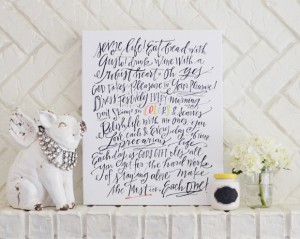 Seize life! Eat bread with
Gusto, drink wine with a
robust heart - Oh yes
God takes pleasure in Your Pleasure!
Dress festively EVERY Morning
Don't Skimp on COLORS & scarves
Relish life with the one you
love each & Every day of
Your precarious life
Each day is GOD'S GIFT it's all
you get for the hard work
of staying alive make
the Most in Each one!